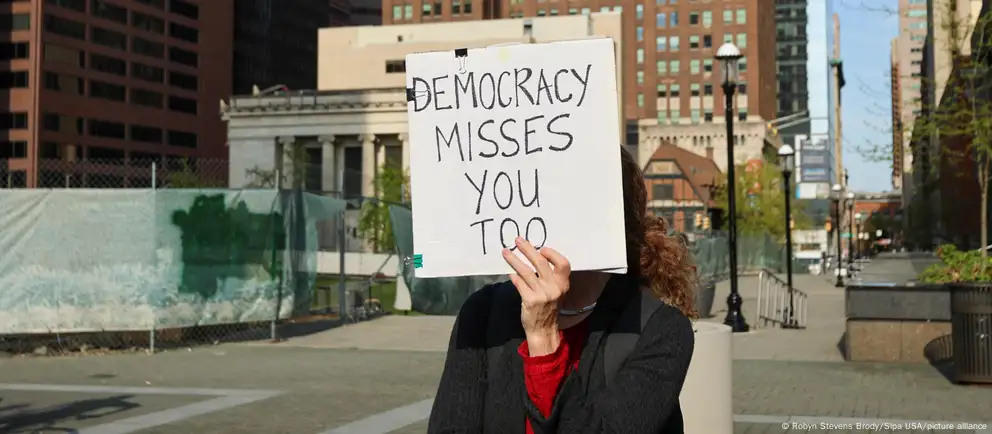 DEMOCRACY
MISSES
YOU
TOO
© Robyn Stevens Brody/Sipa USA/picture alliance